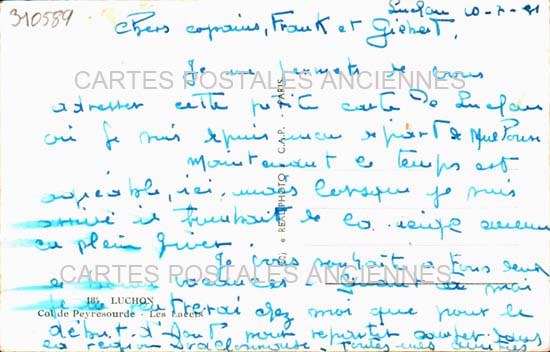 310589
Luchon 10-7-81
Chers copains, Franck et Gilbert.
Je me permets de vous
CARTES POSTALES ANCIENNES
adresser cette petite carte de Luchon
où je suis depuis mon départ de
Maintenant le temps est
agréable, ici, mais lorsque je suis
arrivé il tombait de la neige comme
en plein hiver.
Je vous souhaite à tous deux
CARTES POSTALES ANCIENNES
vacances. Quant à moi
185 LUCHON
je ne rentrerai chez moi que pour le
Col de Peyresourde - Les Lacets
début d'Août pour repartir camper dans
la région Toutes mes amitiés
REALPHOTO C.A.P. - PARIS